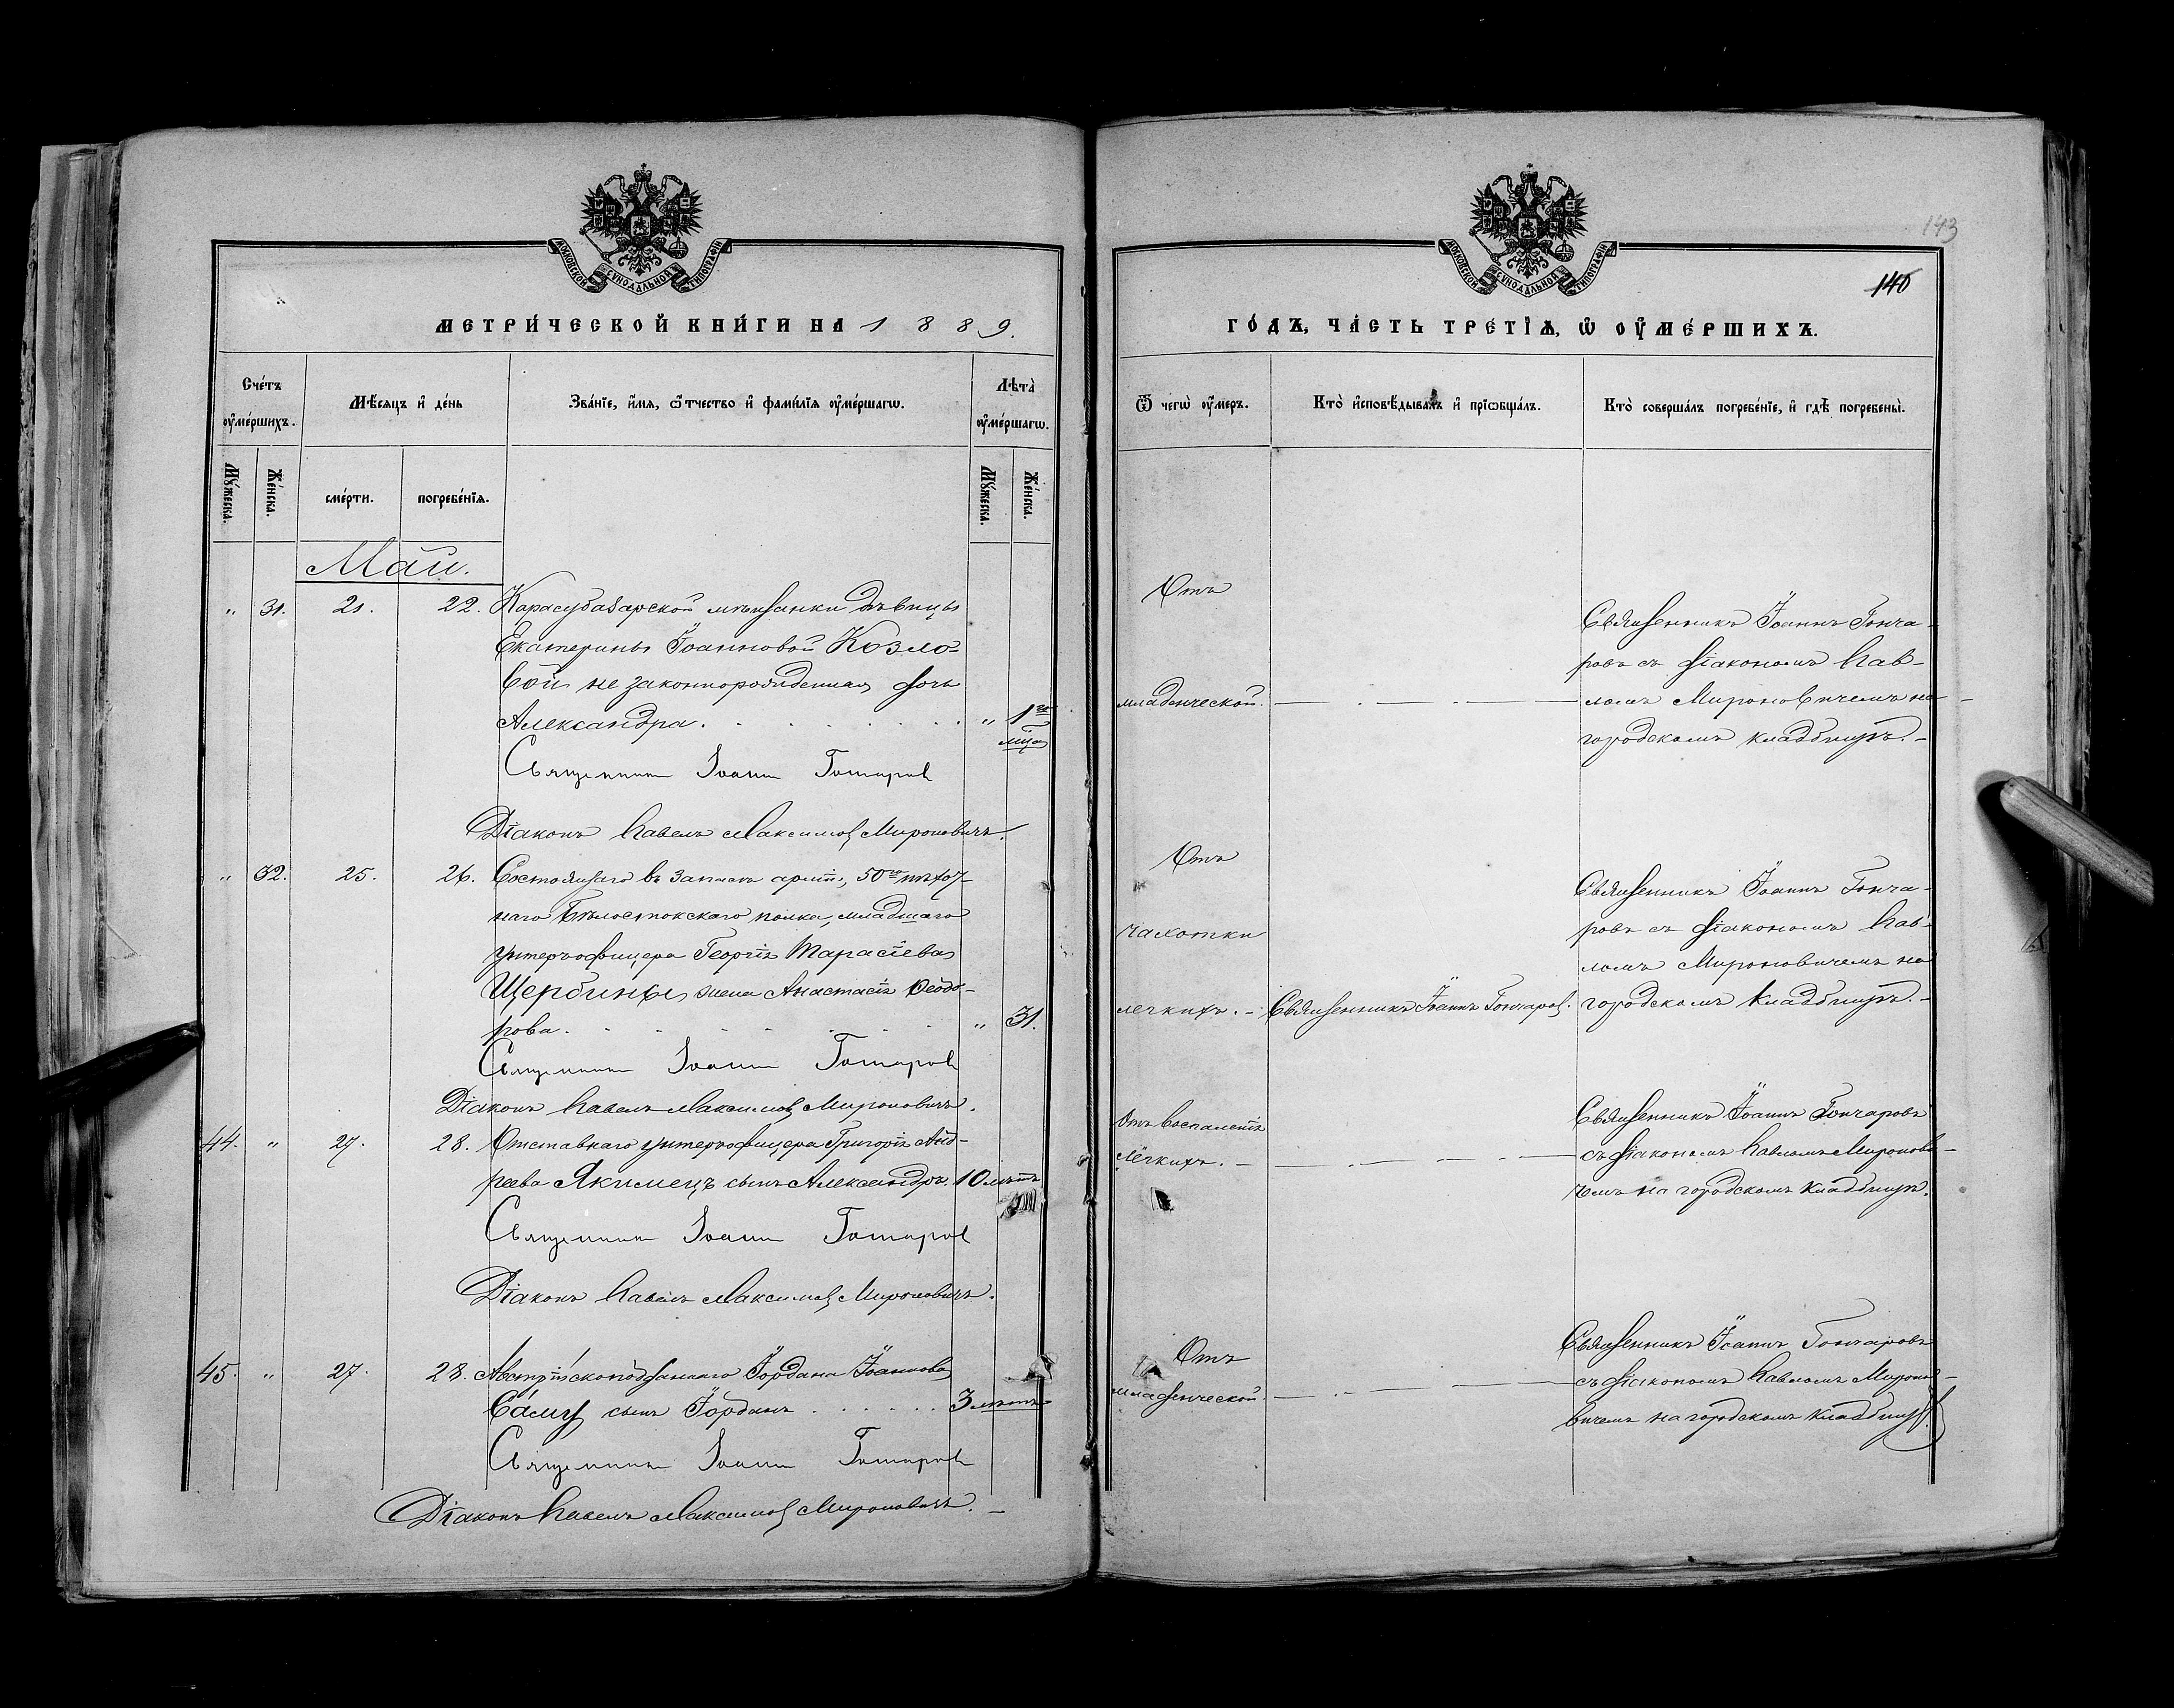 143
140
МОСКОВСКОЙ СѴНОДАЛЬНОЙ ТИПОГРАФІИ
МЕТРИ́ЧЕСКОЙ КНИ́ГИ НА 1889.
Сче́тъ ᲂу҆ме́ршихъ.
Мѣ́сяцъ и҆ де́нь
Зва́нїе, и҆́мѧ, ѻ҆́тчество и҆ фами́лїѧ ᲂу҆ме́ршагѡ.
Лѣта̀ ᲂу҆ме́ршагѡ.
Мꙋ́жеска.
Же́нска.
сме́рти.
погребе́нїѧ.
Мꙋ́жеска.
Же́нска.
Май.
" 31. 21. 22. Карасубазарской мѣщанки дѣвицы
Екатерины Іоанновой Козло-
вой не законнорожденная дочь
Александра. " 1го мѣся
Священникъ Іоаннъ Гончаровъ
Діаконъ Павелъ Максимовъ Мироновичъ.
" 32. 25. 26. Состоящаго въ запасѣ арміи, 50го пѣхот-
наго Бѣлостокскаго полка, младшаго
унтеръофицера Георгія Тарасіева
Щербины, жена Анастасія Ѳеодо-
рова. " 31.
Священникъ Іоаннъ Гончаровъ
Діаконъ Павелъ Максимовъ Мироновичъ.
44. " 27. 28. Отставнаго унтеръофицера Григорія Анд-
реева Якимецъ сынъ Александръ. 10 лѣтъ
Священникъ Іоаннъ Гончаровъ
Діаконъ Павелъ Максимовъ Мироновичъ.
45. " 27. 28. Австрійскоподданнаго Іордана Іоаннова
Самц сынъ Іорданъ 3 лѣтъ
Священникъ Іоаннъ Гончаровъ
Діаконъ Павелъ Максимовъ Мироновичъ. –
МОСКОВСКОЙ СѴНОДАЛЬНОЙ ТИПОГРАФІИ
ГО́ДЪ, ЧА́СТЬ ТРЕ́ТЇѦ, Ѡ҆ ОУ҆МЕ́РШИХЪ.
Ѿ чегѡ̀ ᲂу҆́меръ.
Кто̀ и҆сповѣ́дывалъ и҆ прїѡбща́лъ.
Кто̀ соверша́лъ погребе́нїе, и҆ гдѣ̀ погребены̀.
Отъ
младенческой.
Священникъ Іоаннъ Гонча-
ровъ съ діакономъ Пав-
ломъ Мироновичемъ на
городскомъ кладбищѣ. –
Отъ
чахотки
легкихъ. – Священникъ Іоаннъ Гончаровъ.
Священникъ Іоаннъ Гонча-
ровъ съ діакономъ Пав-
ломъ Мироновичемъ на
городскомъ кладбищѣ. –
Отъ воспаленія
лёгкихъ. –
Священникъ Іоаннъ Гончаровъ
съ діакономъ Павломъ Миронови-
чемъ на городскомъ кладбищѣ.
Отъ
младенческой.
Священникъ Іоаннъ Гончаровъ
съ діакономъ Павломъ Мироно-
вичемъ на городскомъ кладбищѣ.